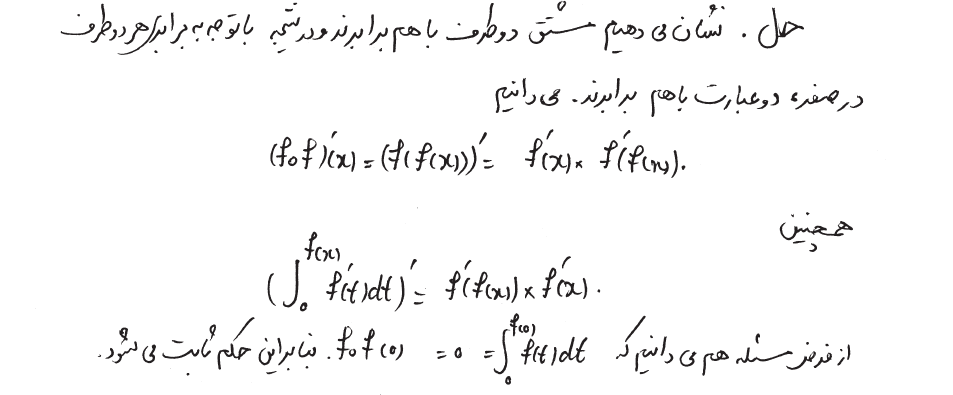 حل . نشان می دهیم مشتق دو طرف با هم برابرند و در نتیجه با توجه به برابری هر دو طرف
در صفر، دو عبارت با هم برابرند. می دانیم
(f∘f)'(x) = (f(f(x)))' = f'(x) × f'(f(x)).
همچنین
(∫₀^{f(x)} f'(t)dt)' = f'(f(x)) × f'(x).
از فرض مسئله هم می دانیم که f∘f(0) = 0 = ∫₀^{f(0)} f'(t)dt. بنابراین حکم ثابت می شود.